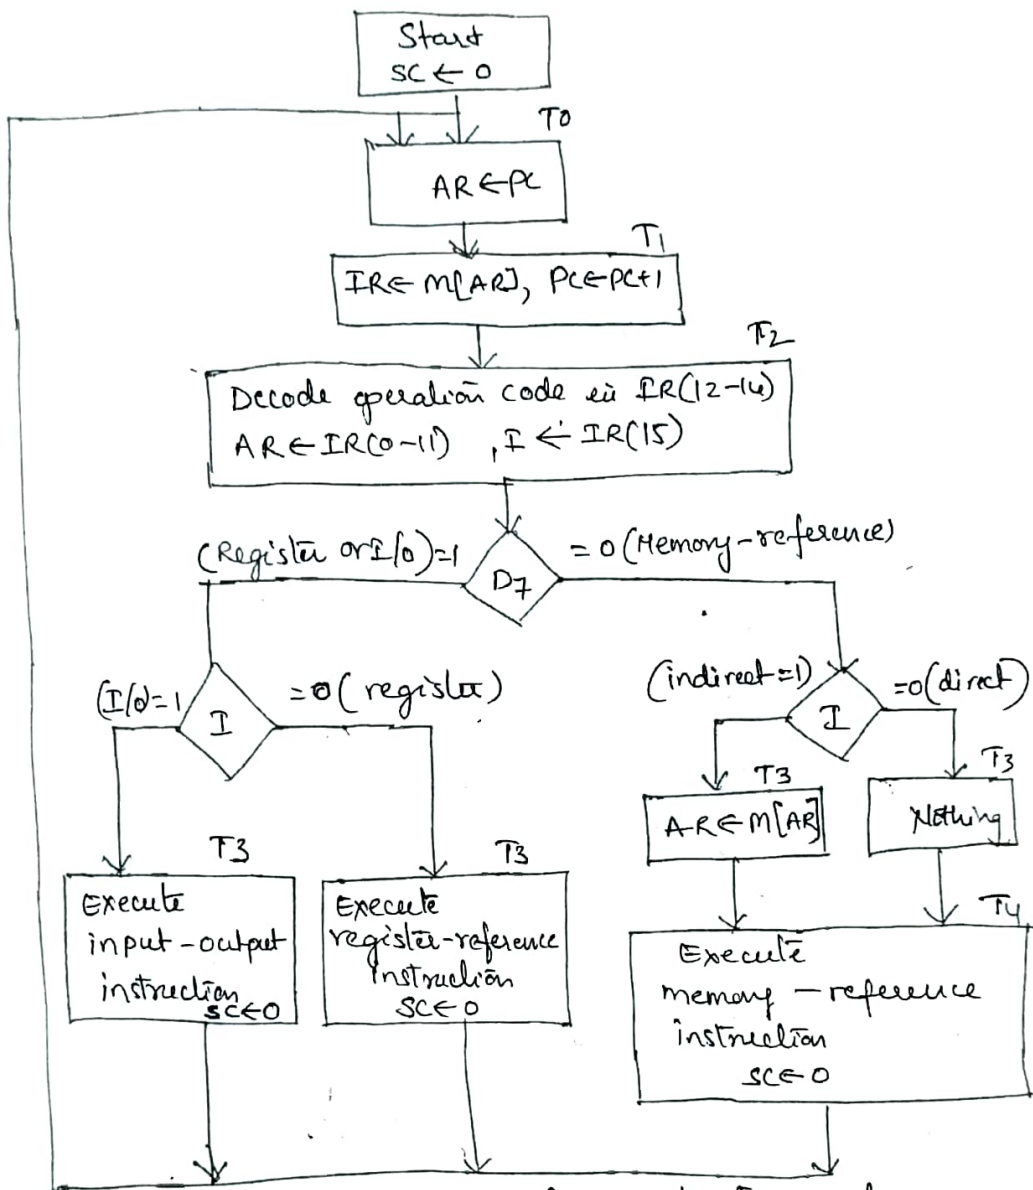 Start
SC ← 0
T0
AR ← PC
T1
IR ← M[AR], PC ← PC+1
T2
Decode operation code in IR(12-14)
AR ← IR(0-11) , I ← IR(15)
(Register or I/O)=1
D7
= 0 (Memory-reference)
(I/O)=1
I
=0 (register)
(indirect=1)
I
=0(direct)
T3
AR ← M[AR]
T3
Nothing
T3
Execute
input-output
instruction
SC←0
T3
Execute
register-reference
instruction
SC← 0
T4
Execute
memory - reference
instruction
SC← 0